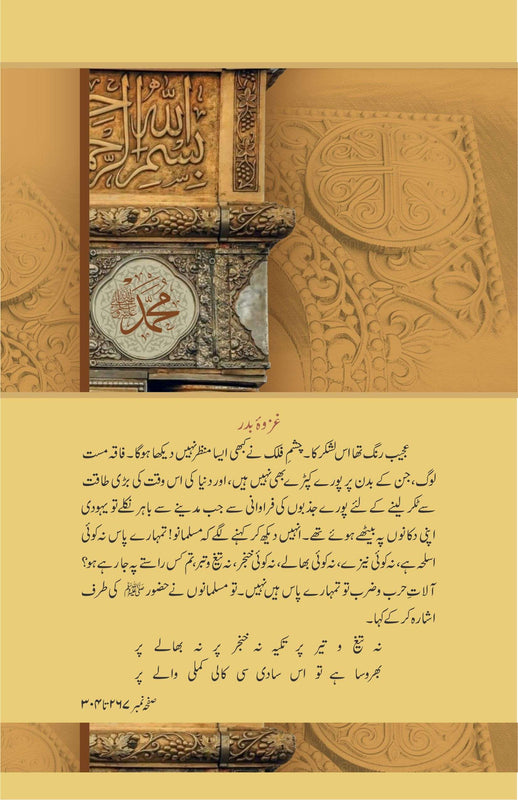 بسم الله الرحم
محمد ﷺ
غزوۂ بدر
عجیب رنگ تھا اس لشکر کا۔ چشمِ فلک نے کبھی ایسا منظر نہیں دیکھا ہوگا۔ فاقہ مست
لوگ، جن کے بدن پر پورے کپڑے بھی نہیں ہیں، اور دنیا کی اس وقت کی بڑی طاقت
سے ٹکر لینے کے لئے پورے جذبوں کی فراوانی سے جب مدینے سے باہر نکلے تو یہودی
اپنی دکانوں پہ بیٹھے ہوئے تھے۔ انہیں دیکھ کر کہنے لگے کہ مسلمانو! تمہارے پاس نہ کوئی
اسلحہ ہے، نہ کوئی نیزے، نہ کوئی بھالے، نہ کوئی خنجر، نہ تیغ و تیر، تم کس راستے پہ جا رہے ہو؟
آلاتِ حرب و ضرب تو تمہارے پاس ہیں نہیں۔ تو مسلمانوں نے حضور ﷺ کی طرف
اشارہ کر کے کہا۔
نہ تیغ و تیر پر تکیہ نہ خنجر پر نہ بھالے پر
بھروسا ہے تو اس سادی سی کالی کملی والے پر
صفحہ نمبر ۲۶۷ تا ۳۰۴